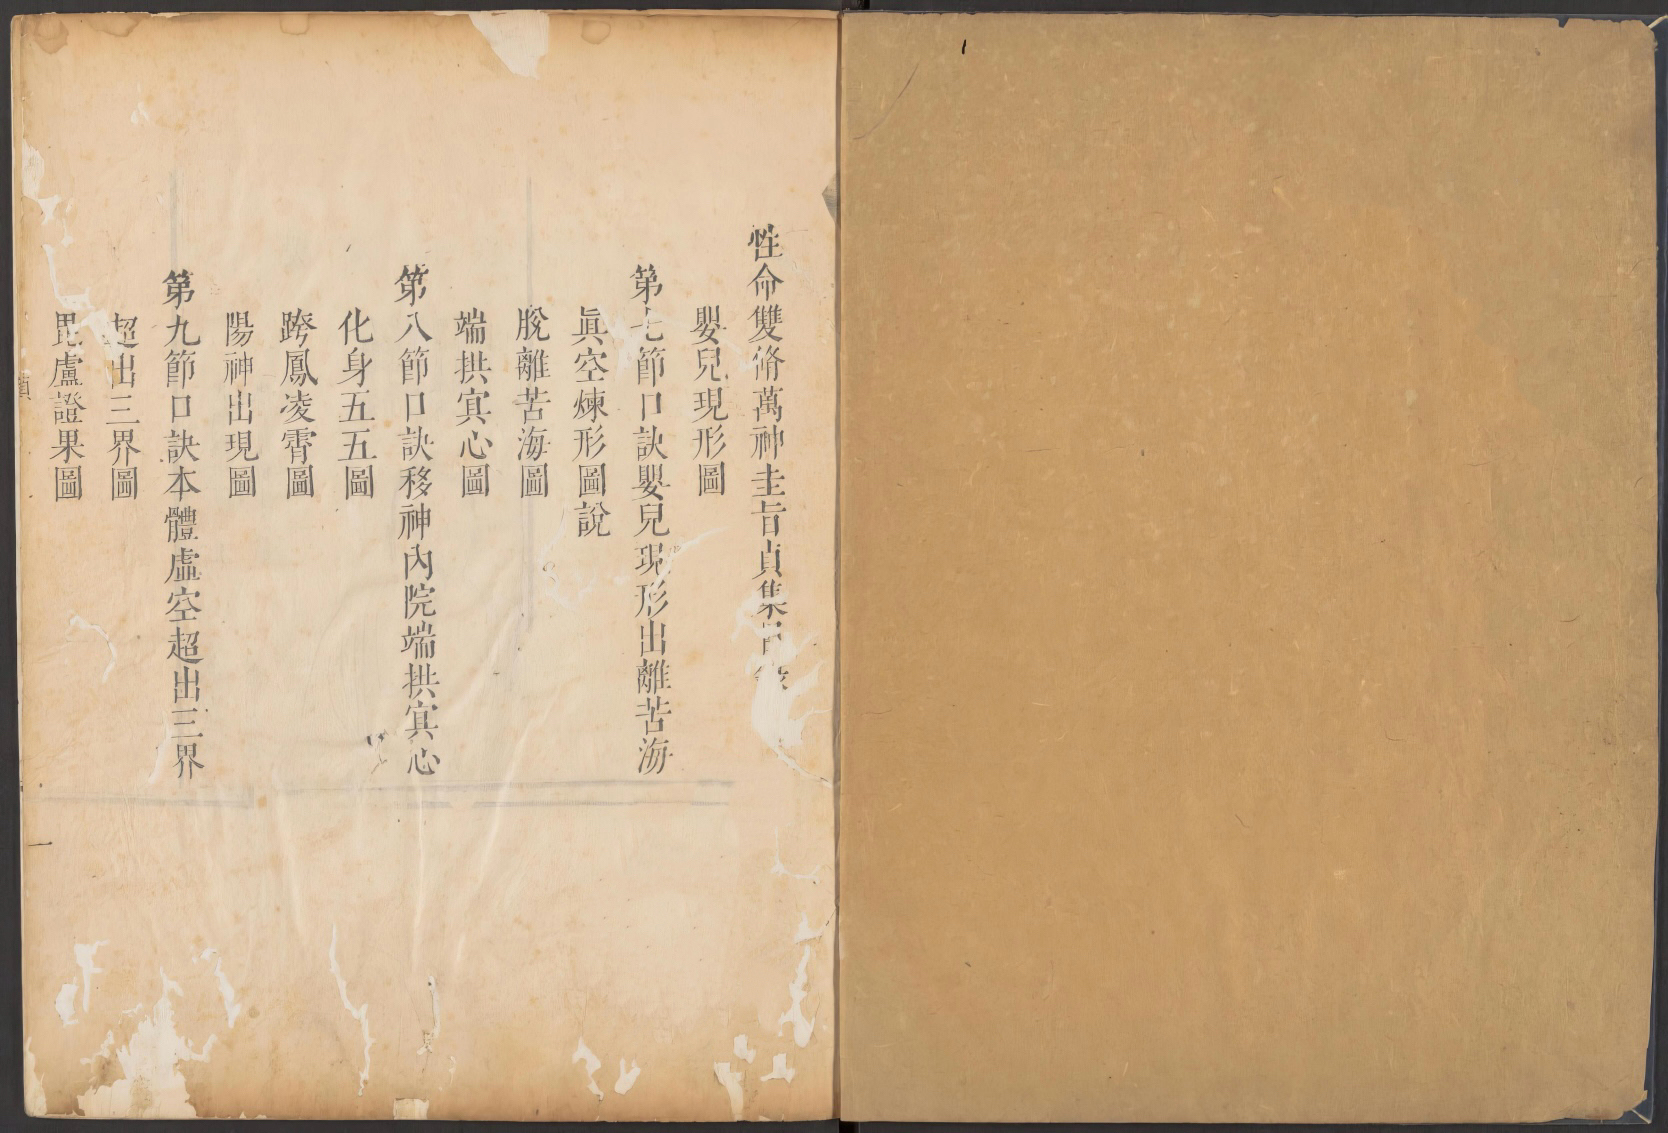 性命雙脩萬神圭旨貞集目
嬰兒現形圖
第七節口訣嬰兒現形出離苦海
眞空煉形圖說
脫離苦海圖
端拱冥心圖
第八節口訣移神內院端拱冥心
化身五五圖
跨鳳凌霄圖
陽神出現圖
第九節口訣本體虛空超出三界
超出三界圖
毘盧證果圖
一